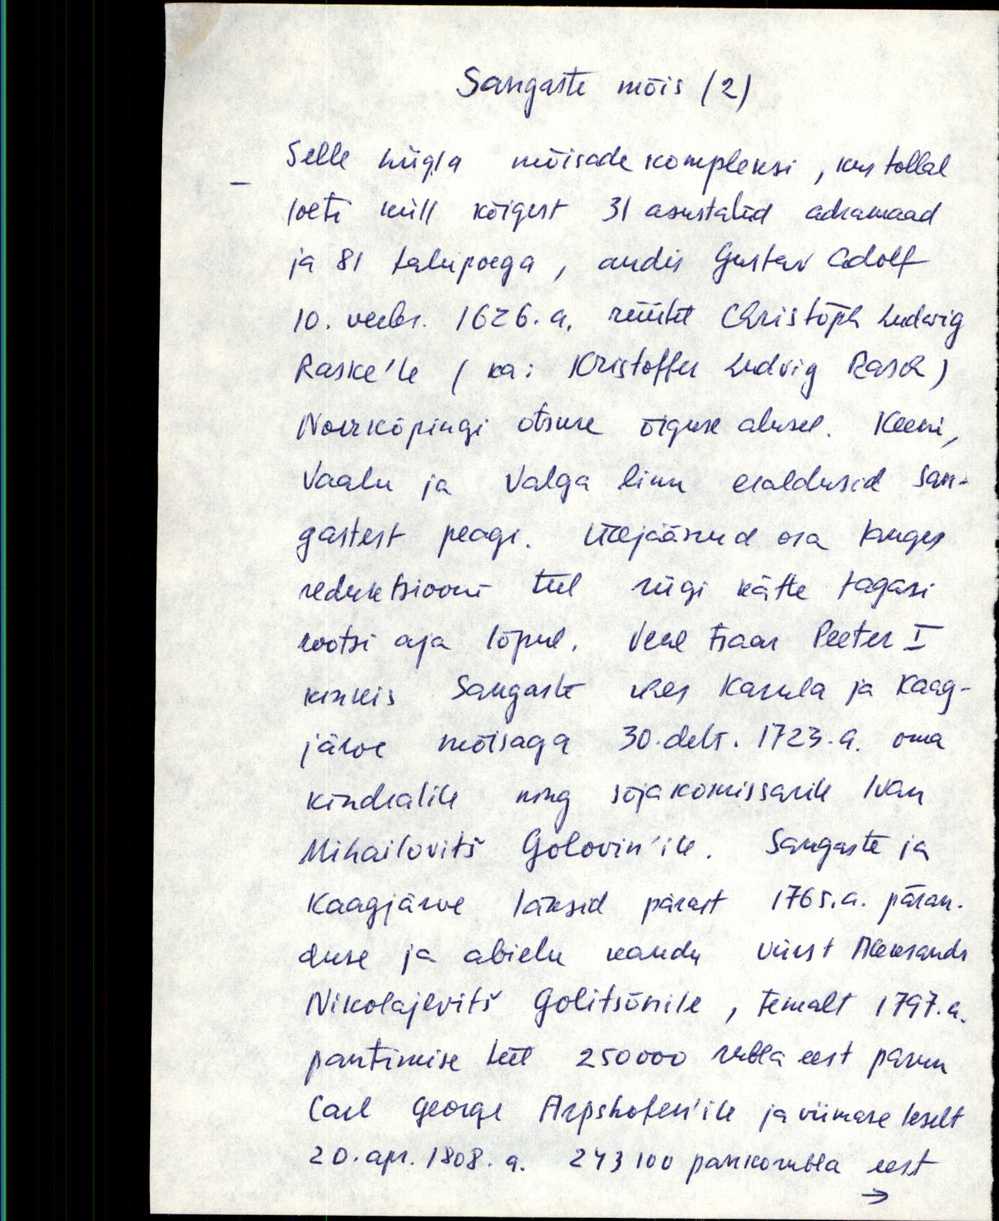 Sangaste mõis (2)
Selle hiigla mõisade kompleksi, kus tollal
– loeti küll kõigest 31 asustatud adramaad
ja 81 talupoega, andis Gustav Adolf
10. veebr. 1626.a. rüütel Christoph Ludwig
Raske'le (ka: Kristoffer Ludvig Rasch)
Norrköpingi otsuse õiguse alusel. Keeni,
Vaalu ja Valga linn eraldusid San-
gastest peagi. Ülejäänud osa langes
reduktsiooni teel riigi kätte tagasi
rootsi aja lõpul. Vene tsaar Peeter I
kinkis Sangaste ühes Karula ja Kaag-
järve mõisaga 30. dets. 1723.a. oma
kindralile ning sõjakomissarile Ivan
Mihailovitš Golovin'ile. Sangaste ja
Kaagjärve läksid pärast 1765.a. päran-
duse ja abielu kaudu vürst Aleksandr
Nikolajevitš Golitsõnile, temalt 1797.a.
pantimise teel 250000 rubla eest parun
Carl George Arpshofen'ile ja viimase leselt
20. apr. 1808.a. 243100 pankorubla eest
→